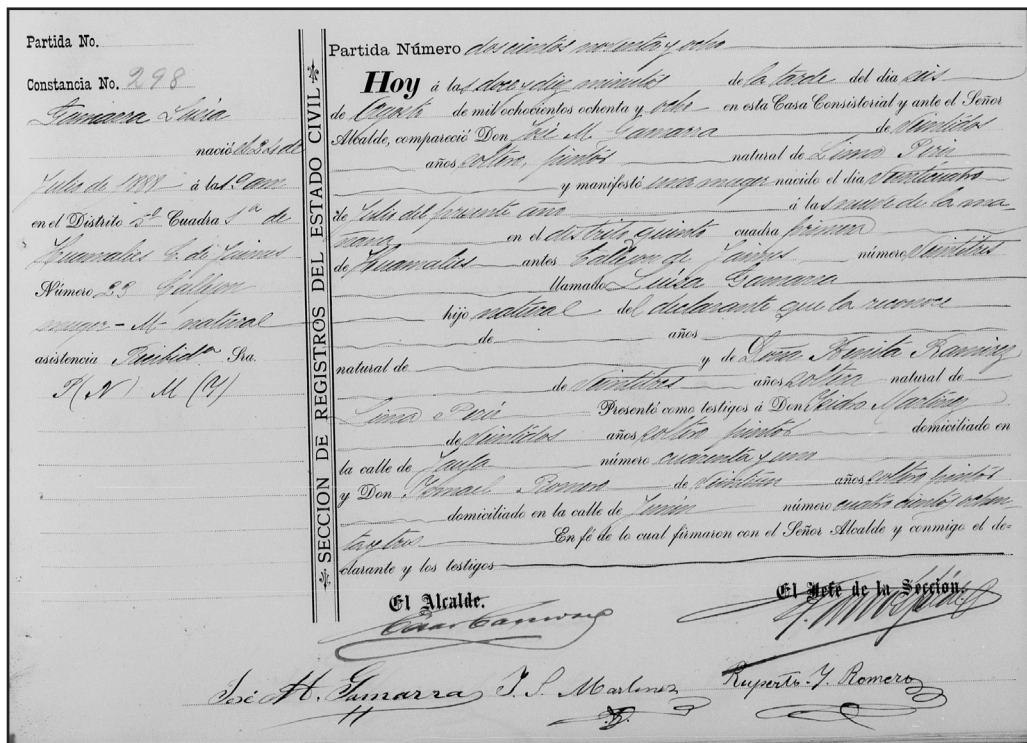 Partida No.
Constancia No. 298
Gamarra Luisa
nació el 24 de
Julio de 1888 á las 9 am
en el Distrito 5º Cuadra 1ª de
Huamalíes C. de Jaimes
Número 23 Callejon
muger - M natural
asistencia Recibida Sra.
P(N) M(Y)
SECCION DE REGISTROS DEL ESTADO CIVIL
Partida Número doscientos noventa y ocho
Hoy á las doce y diez minutos de la tarde del dia seis
de Agosto de mil ochocientos ochenta y ocho en esta Casa Consistorial y ante el Señor
Alcalde, compareció Don José M. Gamarra de veintidos
años soltero natural de Lima Perú
y manifestó una muger nacido el dia veinticuatro
de Julio del presente año á las nueve de la ma-
ñana en el distrito quinto cuadra primera
de Huamalíes antes Callejon de Jaimes número veintitres
llamado Luisa Gamarra
hijo natural del declarante que la reconoce
de años
natural de y de Doña Benita Ramirez
de veintitres años soltera natural de
Lima Perú Presentó como testigos á Don Isidro Martinez
de veintidos años soltero domiciliado en
la calle de Jauja número cuarenta y uno
y Don Romero de veintiun años soltero
domiciliado en la calle de Junin número cuatrocientos ochen-
ta y tres En fé de lo cual firmaron con el Señor Alcalde y conmigo el de-
clarante y los testigos
El Alcalde. El Jefe de la Sección.
José M. Gamarra I. S. Martinez Ruperto Y. Romero